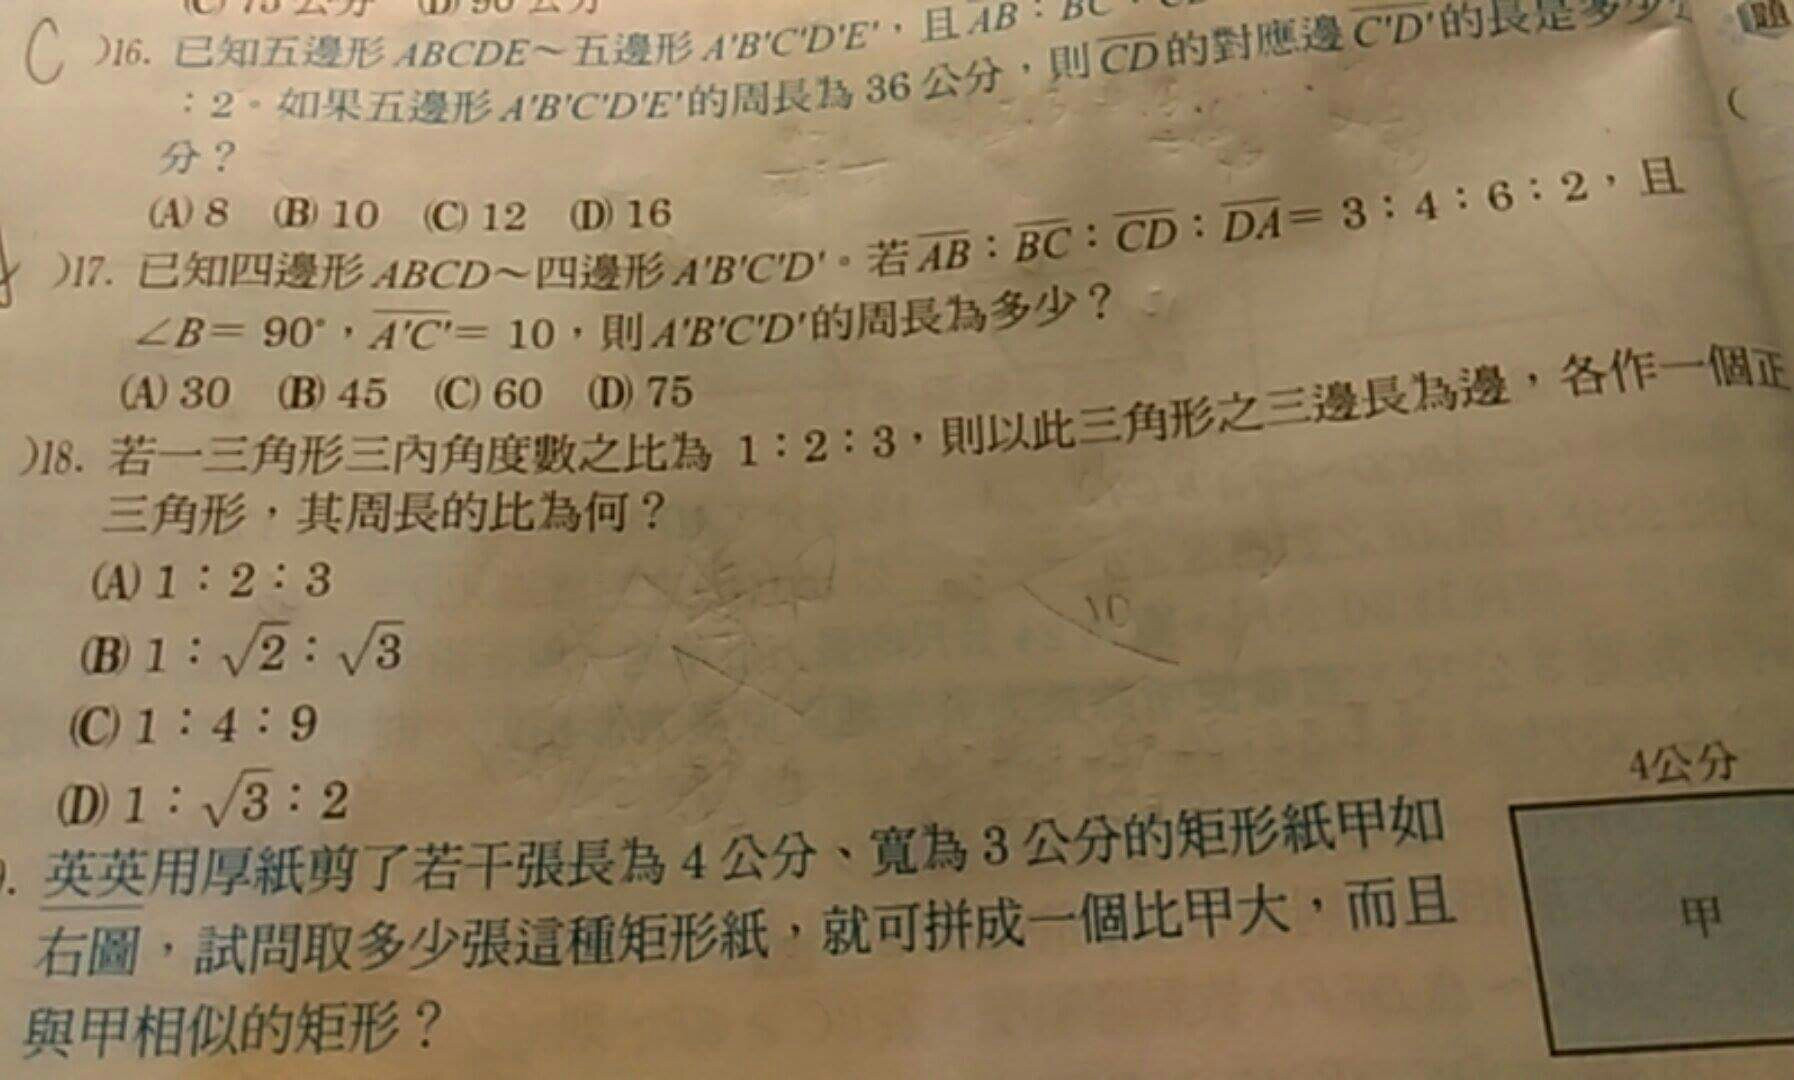 (C) 75 公分 (D) 90 公分
C )16. 已知五邊形 ABCDE～五邊形 A'B'C'D'E'，且 AB：BC
：2。如果五邊形 A'B'C'D'E' 的周長為 36 公分，則 CD 的對應邊 C'D' 的長是多少
分？
(A) 8 (B) 10 (C) 12 (D) 16
)17. 已知四邊形 ABCD～四邊形 A'B'C'D'。若 AB：BC：CD：DA＝3：4：6：2，且
∠B＝90°，A'C'＝10，則 A'B'C'D' 的周長為多少？
(A) 30 (B) 45 (C) 60 (D) 75
)18. 若一三角形三內角度數之比為 1：2：3，則以此三角形之三邊長為邊，各作一個正
三角形，其周長的比為何？
(A) 1：2：3
(B) 1：√2：√3
(C) 1：4：9
(D) 1：√3：2
10
. 英英用厚紙剪了若干張長為 4 公分、寬為 3 公分的矩形紙甲如
右圖，試問取多少張這種矩形紙，就可拼成一個比甲大，而且
與甲相似的矩形？
4公分
甲
題
(